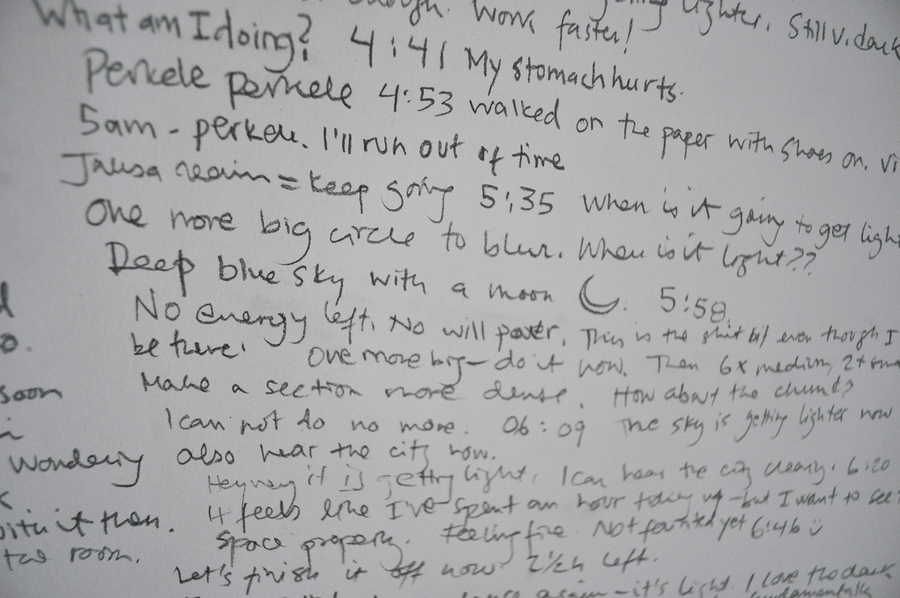 Work faster! lighter. Still v. dark
What am I doing? 4:41 My stomach hurts.
Perkele perkele 4:53 walked on the paper with shoes on.
5am - perkele. I'll run out of time
= keep going 5:35 When is it going to get light
One more big circle to blur. When is it light??
Deep blue sky with a moon 5:58
No energy left. No will power. This is the shit bit even though I
be there. One more big - do it now. Then 6x medium, 2x
soon Make a section more dense. How about the
I can not do no more. 06:09 The sky is getting lighter now
wondering also hear the city now.
it is getting light. I can hear the city clearly. 6:20
It feels like I've spent an hour up - but I want to see
with it then. space properly. Feeling fine. Not yet 6:46
room. Let's finish it off now 2 1/2h left.
again - it's light. I love the dark
fundamentally